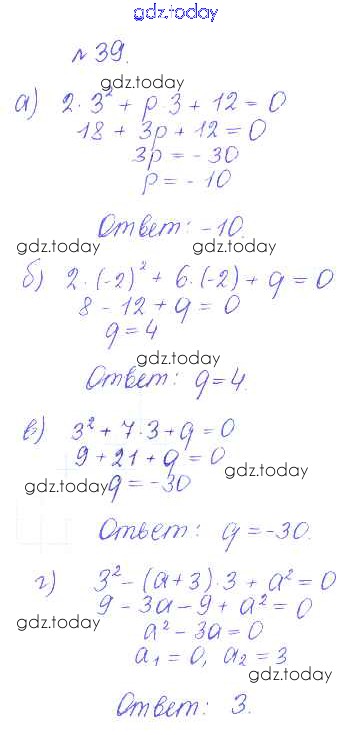 gdz.today
№ 39.
gdz.today
а) 2·3² + p·3 + 12 = 0
18 + 3p + 12 = 0
3p = - 30
p = - 10
Ответ: -10.
gdz.today gdz.today
б) 2·(-2)² + 6·(-2) + q = 0
8 - 12 + q = 0
q = 4
gdz.today
Ответ: q = 4.
в) 3² + 7·3 + q = 0
9 + 21 + q = 0
gdz.today
gdz.today q = -30
Ответ: q = -30.
г) 3² - (a+3)·3 + a² = 0
9 - 3a - 9 + a² = 0
gdz.today
a² - 3a = 0
a₁ = 0, a₂ = 3
gdz.today
Ответ: 3.